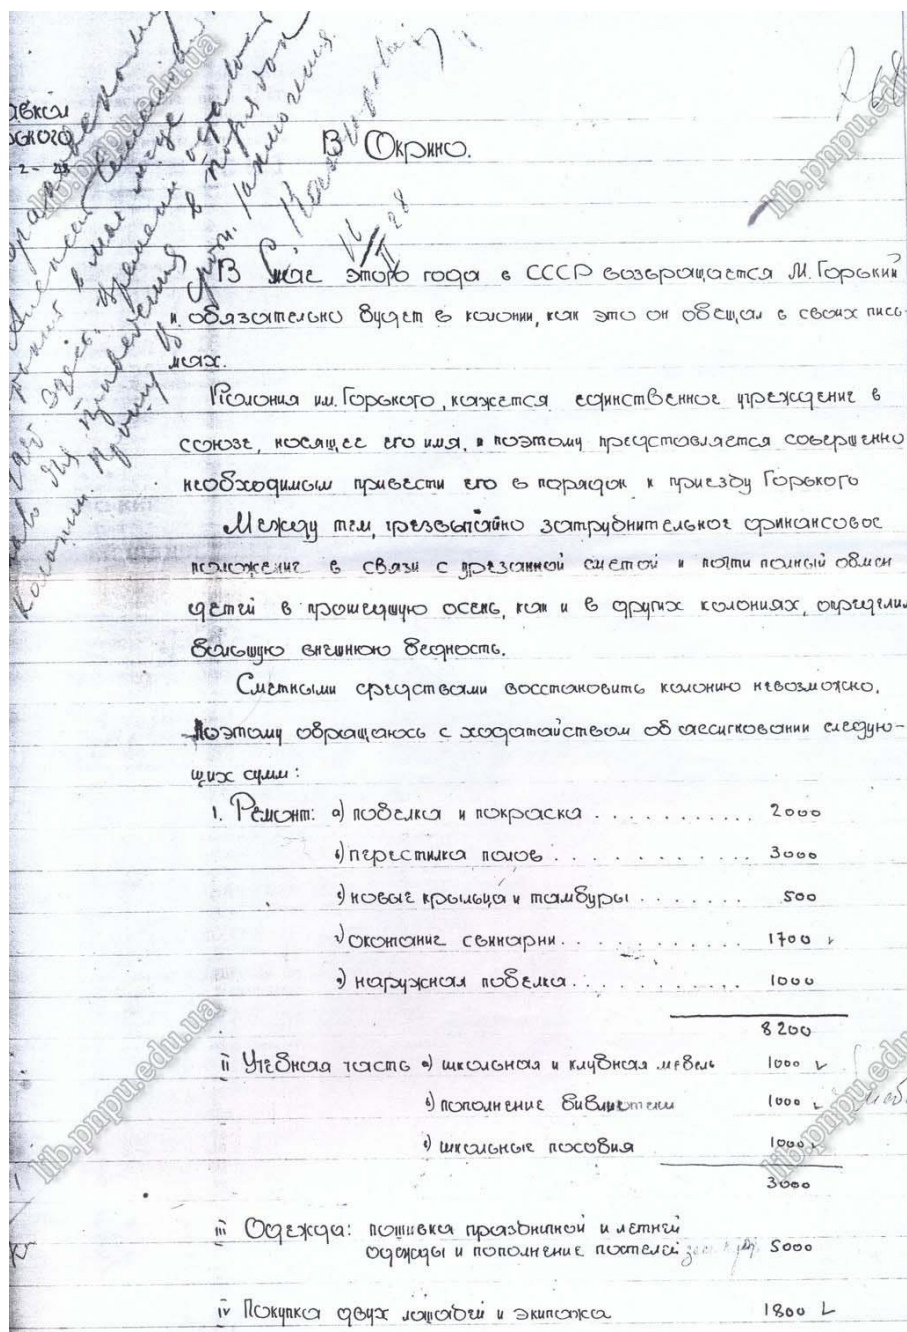 В Окрино.
2 - 28
В мае этого года в СССР возвращается М. Горький
и обязательно будет в колонии, как это он обещал в своих пись-
мах.
Колония им. Горького, кажется единственное учреждение в
союзе, носящее его имя, и поэтому представляется совершенно
необходимым привести его в порядок к приезду Горького
Между тем, чрезвычайно затруднительное финансовое
положение в связи с урезанной сметой и почти полный обмен
детей в прошедшую осень, как и в других колониях, определил
большую внешнюю бедность.
Сметными средствами восстановить колонию невозможно.
Поэтому обращаюсь с ходатайством об ассигновании следую-
щих сумм:
1. Ремонт: а) побелка и покраска . . . . . . . . . . . 2000
в) перестилка полов . . . . . . . . . . . 3000
с) новые крыльца и тамбуры . . . . . . . 500
окончание свинарни . . . . . . . . . . . 1700
наружная побелка . . . . . . . . . . . 1000
8200
ii Учебная часть а) школьная и клубная мебель 1000
в) пополнение библиотеки 1000
с) школьные пособия 1000
3000
iii Одежда: пошивка праздничной и летней
одежды и пополнение постелей 5000
iv Покупка двух лошадей и экипажа 1800
lib.pnpu.edu.ua
lib.pnpu.edu.ua
lib.pnpu.edu.ua
lib.pnpu.edu.ua